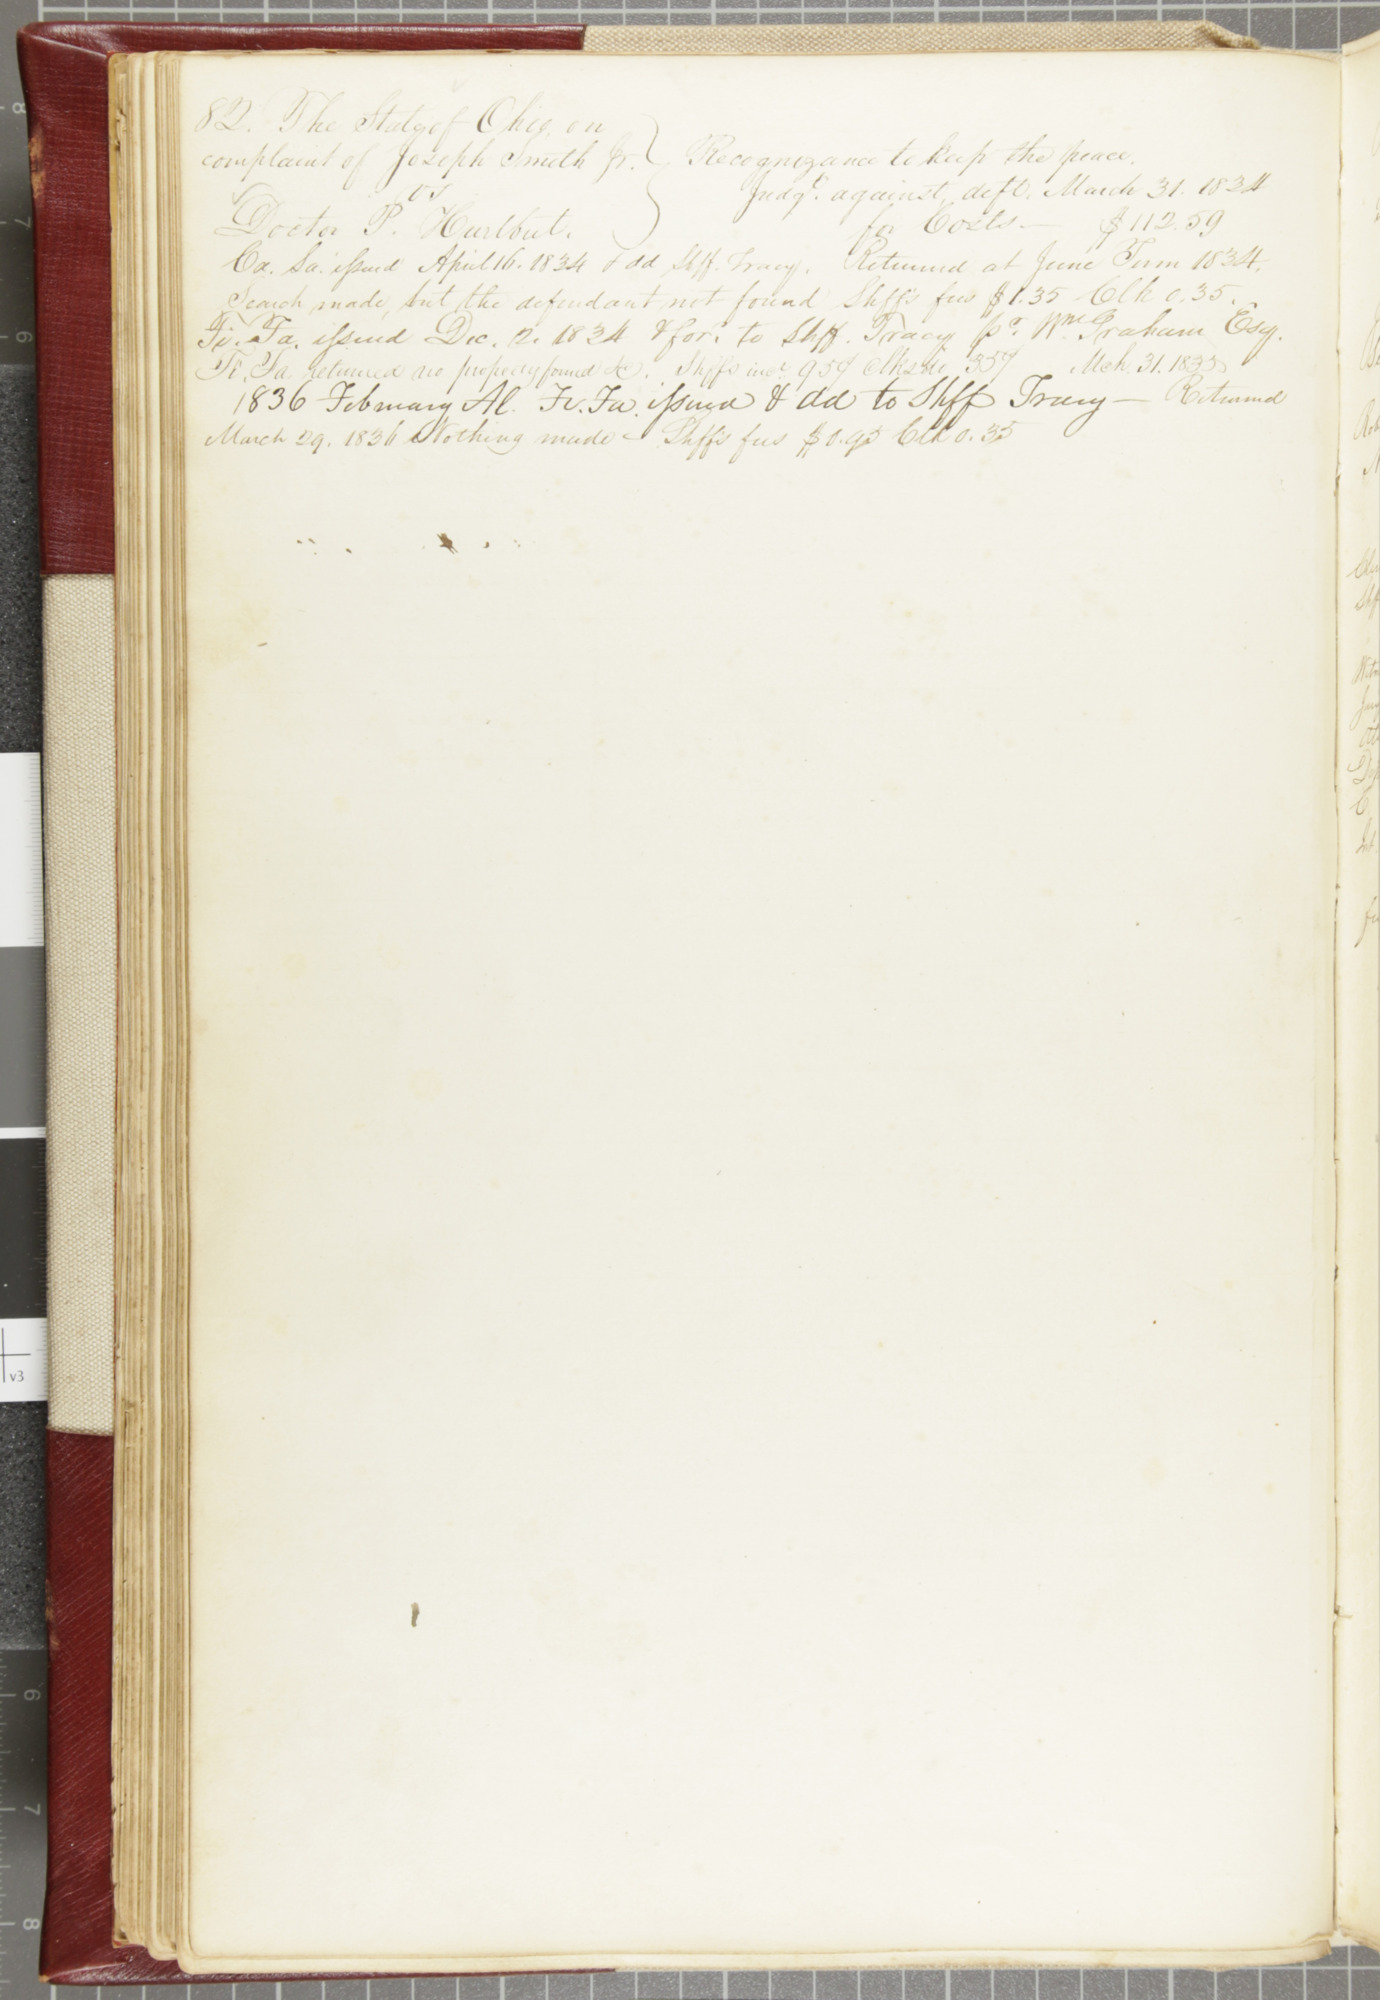 82. The State of Ohio, on
complaint of Joseph Smith Jr. } Recognizance to keep the peace.
vs Judgt. against deft. March 31. 1834
Doctor P. Hurlbut. for Costs — $112.59
Ca. Sa. issued April 16. 1834 & dd Shff. Tracy. Returned at June Term 1834.
Search made, but the defendant not found Shffs fees $1.35 Clk 0.35.
Fi. Fa. issued Dec. 2. 1834 & for. to Shff. Tracy pr. Wm. Graham Esq.
Fi. Fa. returned no property found &c. Shffs 95 Clks 35 Mch. 31. 1835
1836 February Al. Fi. Fa. issued & dd to Shff Tracy — Returned
March 29. 1836 Nothing made — Shffs fees $0.95 Clk 0.35